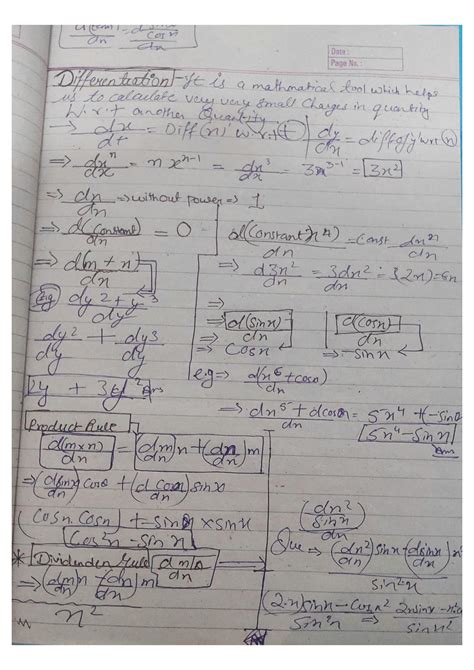 d(sinx)/dn = dsinx/cosn/dn
Date :
Page No. :
Differentiation - It is a mathmatical tool which helps
us to calculate very very small Changes in quantity
W.r.t another Quantity.
→ dx/dt = Diff(n) w.r.t (t) | dy/dn = diff of y w.r.t (n)
⇒ dx^n/dx = n x^(n-1) = dx^3/dx = 3x^(3-1) = 3x^2
⇒ dn/dn ⇒ without power ⇒ 1
⇒ d(Constant)/dn = 0
d(Constant x^n)/dn = Const dn^n/dn
⇒ d(m + n)/dn
⇒ d3n^2/dn = 3dn^2/dn = 3(2n) = 6n
e.g dy^2 + y^3/dy
⇒
dy^2/dy + dy3/dy
⇒ d(sinx)/dn ⇒ Cosn
d(cosn)/dn ⇒ -sinx
2y + 3y^2 Ans
e.g ⇒ d(x^5 + coso)/dn
⇒ dn^5 + dcoso/dn = 5x^4 + (-sinθ
5x^4 - Sinx Ans
Product Rule
d(m×n)/dn = (dm/dn)n + (dn/dn)m
⇒ (dsinx/dn) cosθ + (d cosn/dn) sinx
(Cosn. Cosn) + - sinx × sinx
Cos^2n - sin x
* Dividenden rule d m/n/dn
⇒ (dm/dn)n - (dn/dn)m
n^2
(dn^2/sinx/dn)
Que ⇒ (dn^2/dn) sinx - (dsinx/dn) x^2
Sin^2x
(2x)sinx - Cosn^2/Sin^2n ⇒ 2xsinx -
sinx^2